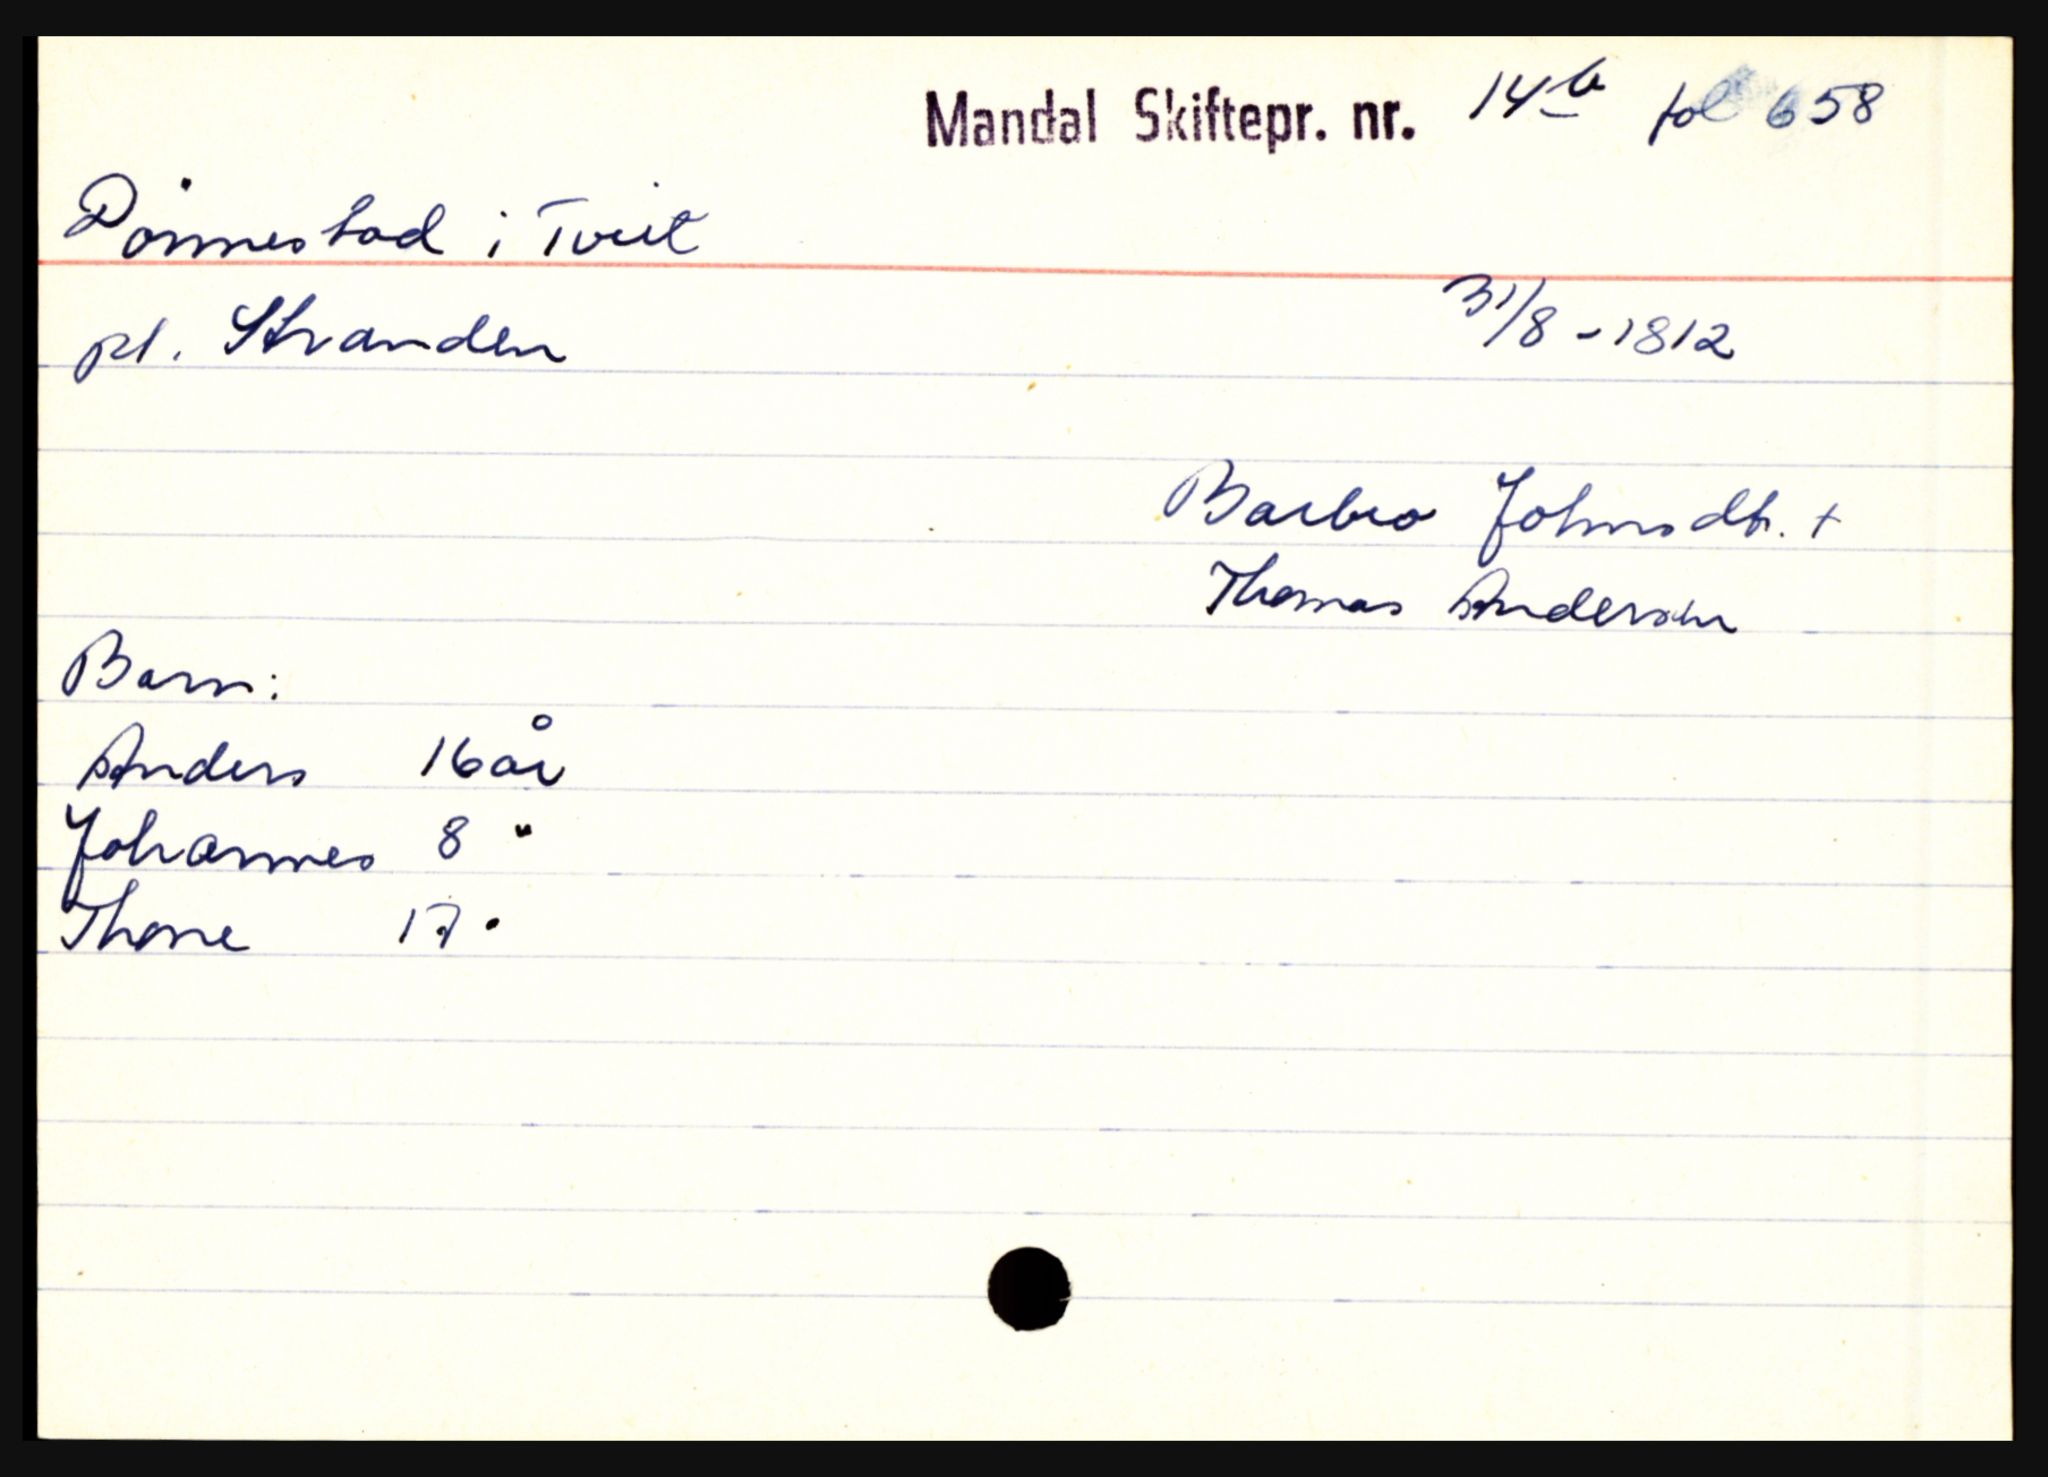 Mandal Skiftepr. nr. 14b fol 658
Dønnestad i Tveit
pl. Stranden 31/8 - 1812
Barbro Johnsdtr. +
Thomas Andersen
Barn:
Anders 16 år
Johannes 8 "
Thone 17 "